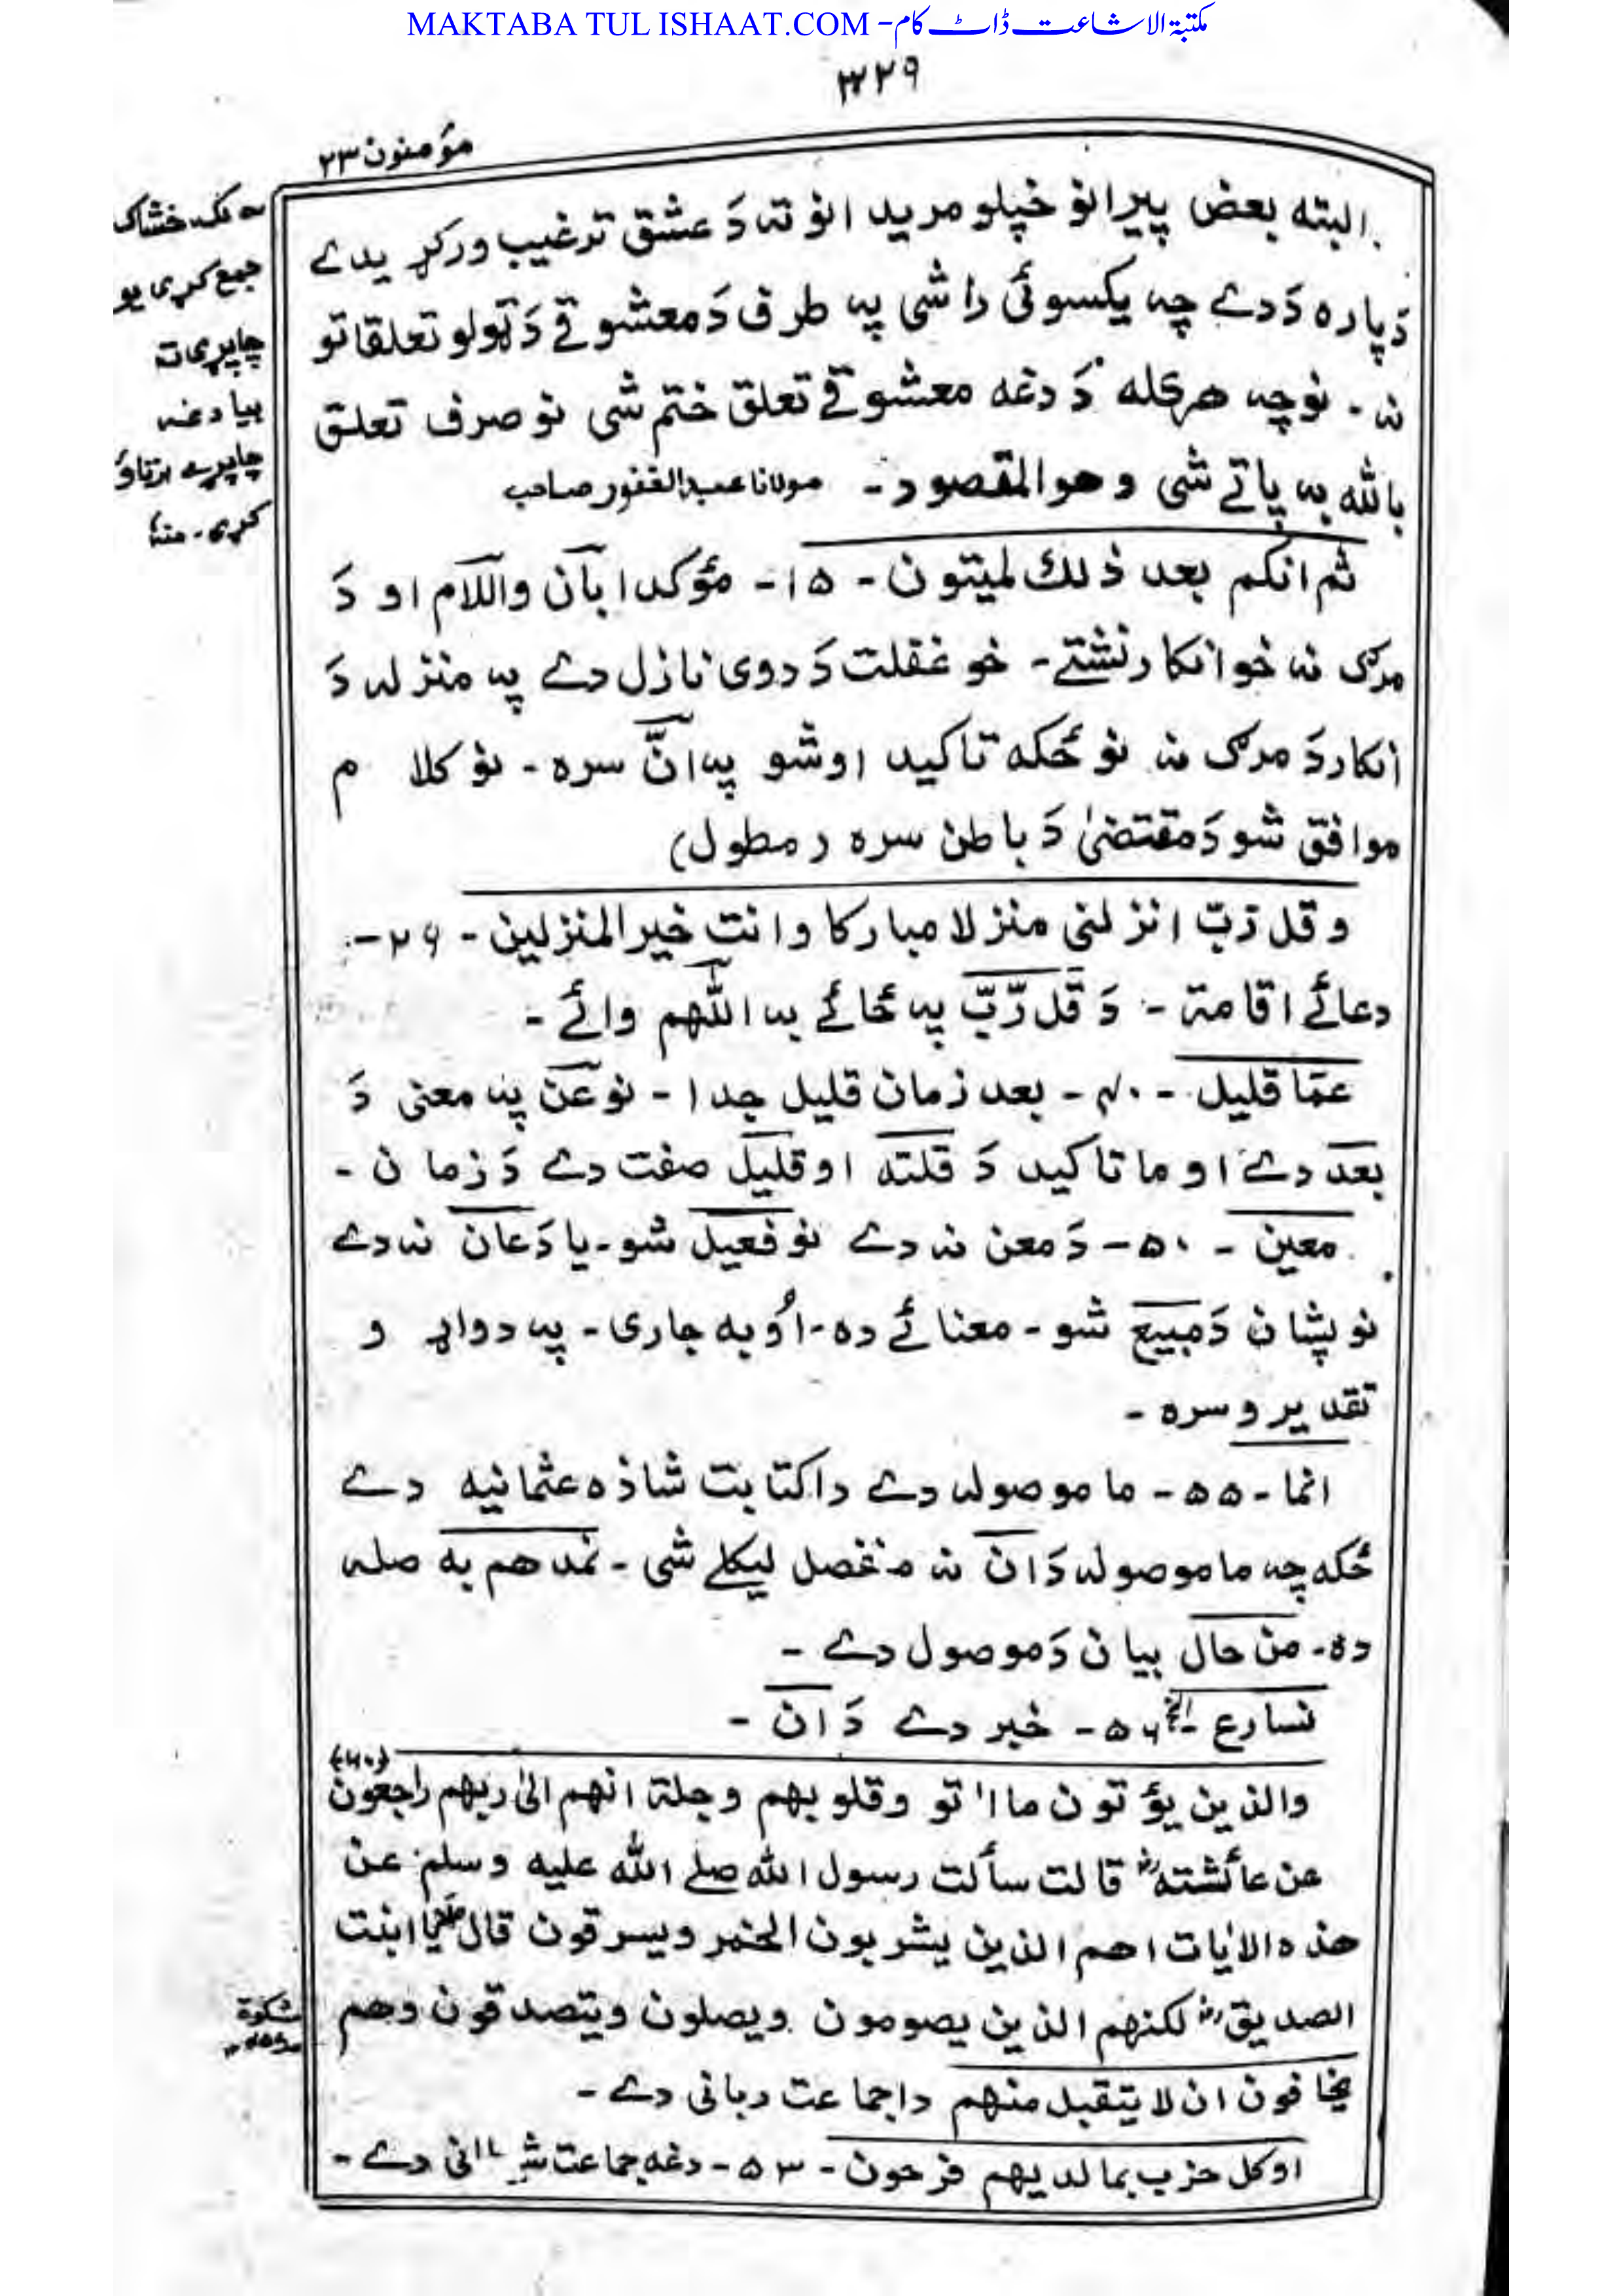 MAKTABA TUL ISHAAT.COM - مکتبۃ الاشاعت ڈاٹ کام
۳۲۹
مؤمنون ۲۳
البته بعض پیرانو خپلو مریدانو ته دَ عشق ترغیب ورکړیدے
دَپاره دَدے چه یکسوئی راشی په طرف دَ معشوقے دَ ټولو تعلقاتو
نه - نوچه هرکله دَ دغه معشوقے تعلق ختم شی نو صرف تعلق
بالله به پاتے شی وهوالمقصود - مولانا عبدالغفور صاحب
ثم انکم بعد ذلك لمیتون - ۱۵ - مؤکدا بآن واللام او دَ
مرګ نه خو انکار نشتے - خو غفلت دَ دوی نازل دے په منزله دَ
انکار دَ مرګ نه نو ځکه تاکید اوشو په انَّ سره - نو کلام
موافق شو دَ مقتضیٰ دَ باطن سره (مطول)
وقل رّبّ انزلنی منزلا مبارکا وانت خیرالمنزلین - ۲۹ -
دعائے اقامة - دَ قل رّبّ په ځائے به اللّٰهم وائے -
عمّا قلیل - ۴۰ - بعد زمان قلیل جدا - نو عن په معنی دَ
بعد دے او ما تاکید دَ قلته او قلیل صفت دے دَ زمان -
معین - ۵۰ - دَ معن نه دے نو فعیل شو - یا دَ عان نه دے
نو پشان دَ مبیع شو - معنائے ده - اُوبه جاری - په دواړو
تقدیرو سره -
انما - ۵۵ - ما موصوله دے دا کتابت شاذه عثمانیه دے
ځکه چه ما موصوله دَ ان نه منفصل لیکلے شی - نمدهم به صله
ده - من حال بیان دَ موصول دے -
نسارع الخ - ۵۶ - خبر دے دَ ان -
والذین یؤتون ما اٰتو وقلوبهم وجلة انهم الیٰ ربهم راجعون (۶۰)
عن عائشتهؓ قالت سألت رسول الله صلے الله علیه وسلم عن
هذه الاٰیات اهم الذین یشربون الخمر ویسرقون قال یا ابنت
الصدیقؓ لکنهم الذین یصومون ویصلون ویتصدقون وهم
یخافون ان لا یتقبل منهم داجماعت ربانی دے -
اوکل حزب بما لدیهم فرحون - ۵۳ - دغه جماعت دے -
خشاک
جمع کړی یو
بیا دغه
کړی - منه